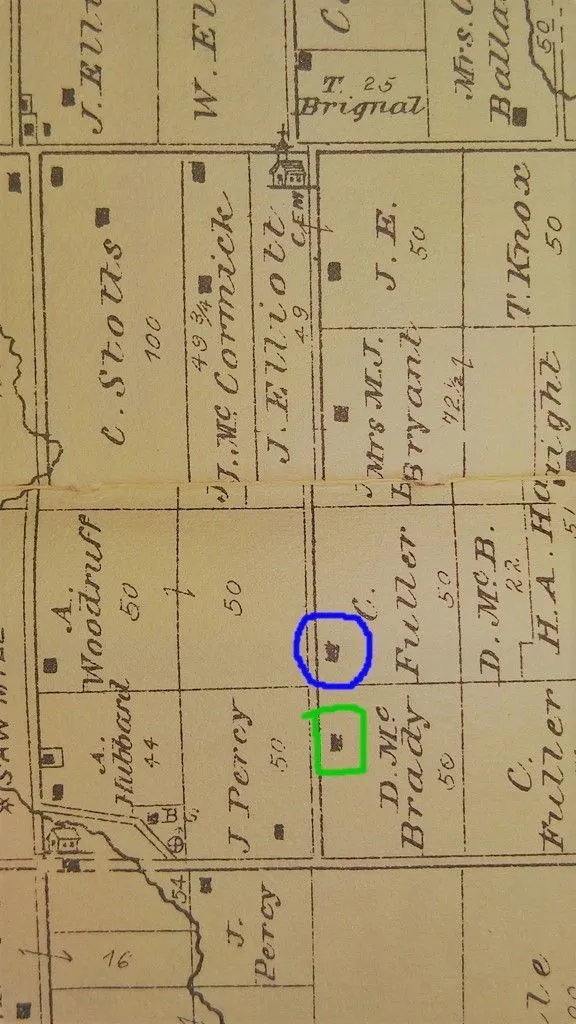 J. Elli
W. El
C
T. 25
Brignal
Mrs. C
Balla
50
C. Stotts
100
J. Mc. Cormick
49 3/4
J. Elliott
49
CEM
J. E.
50
T. Knox
50
Mrs M.J.
Bryant
72 1/2
A.
Woodruff
50
50
C.
Fuller
50
D. Mc B.
22
H. A. Ha
right
51
SAW MILL
A.
Hubbard
44
J Percy
50
D. Mc
Brady
50
C.
Fuller
B
S.
54
J.
Percy
16
le